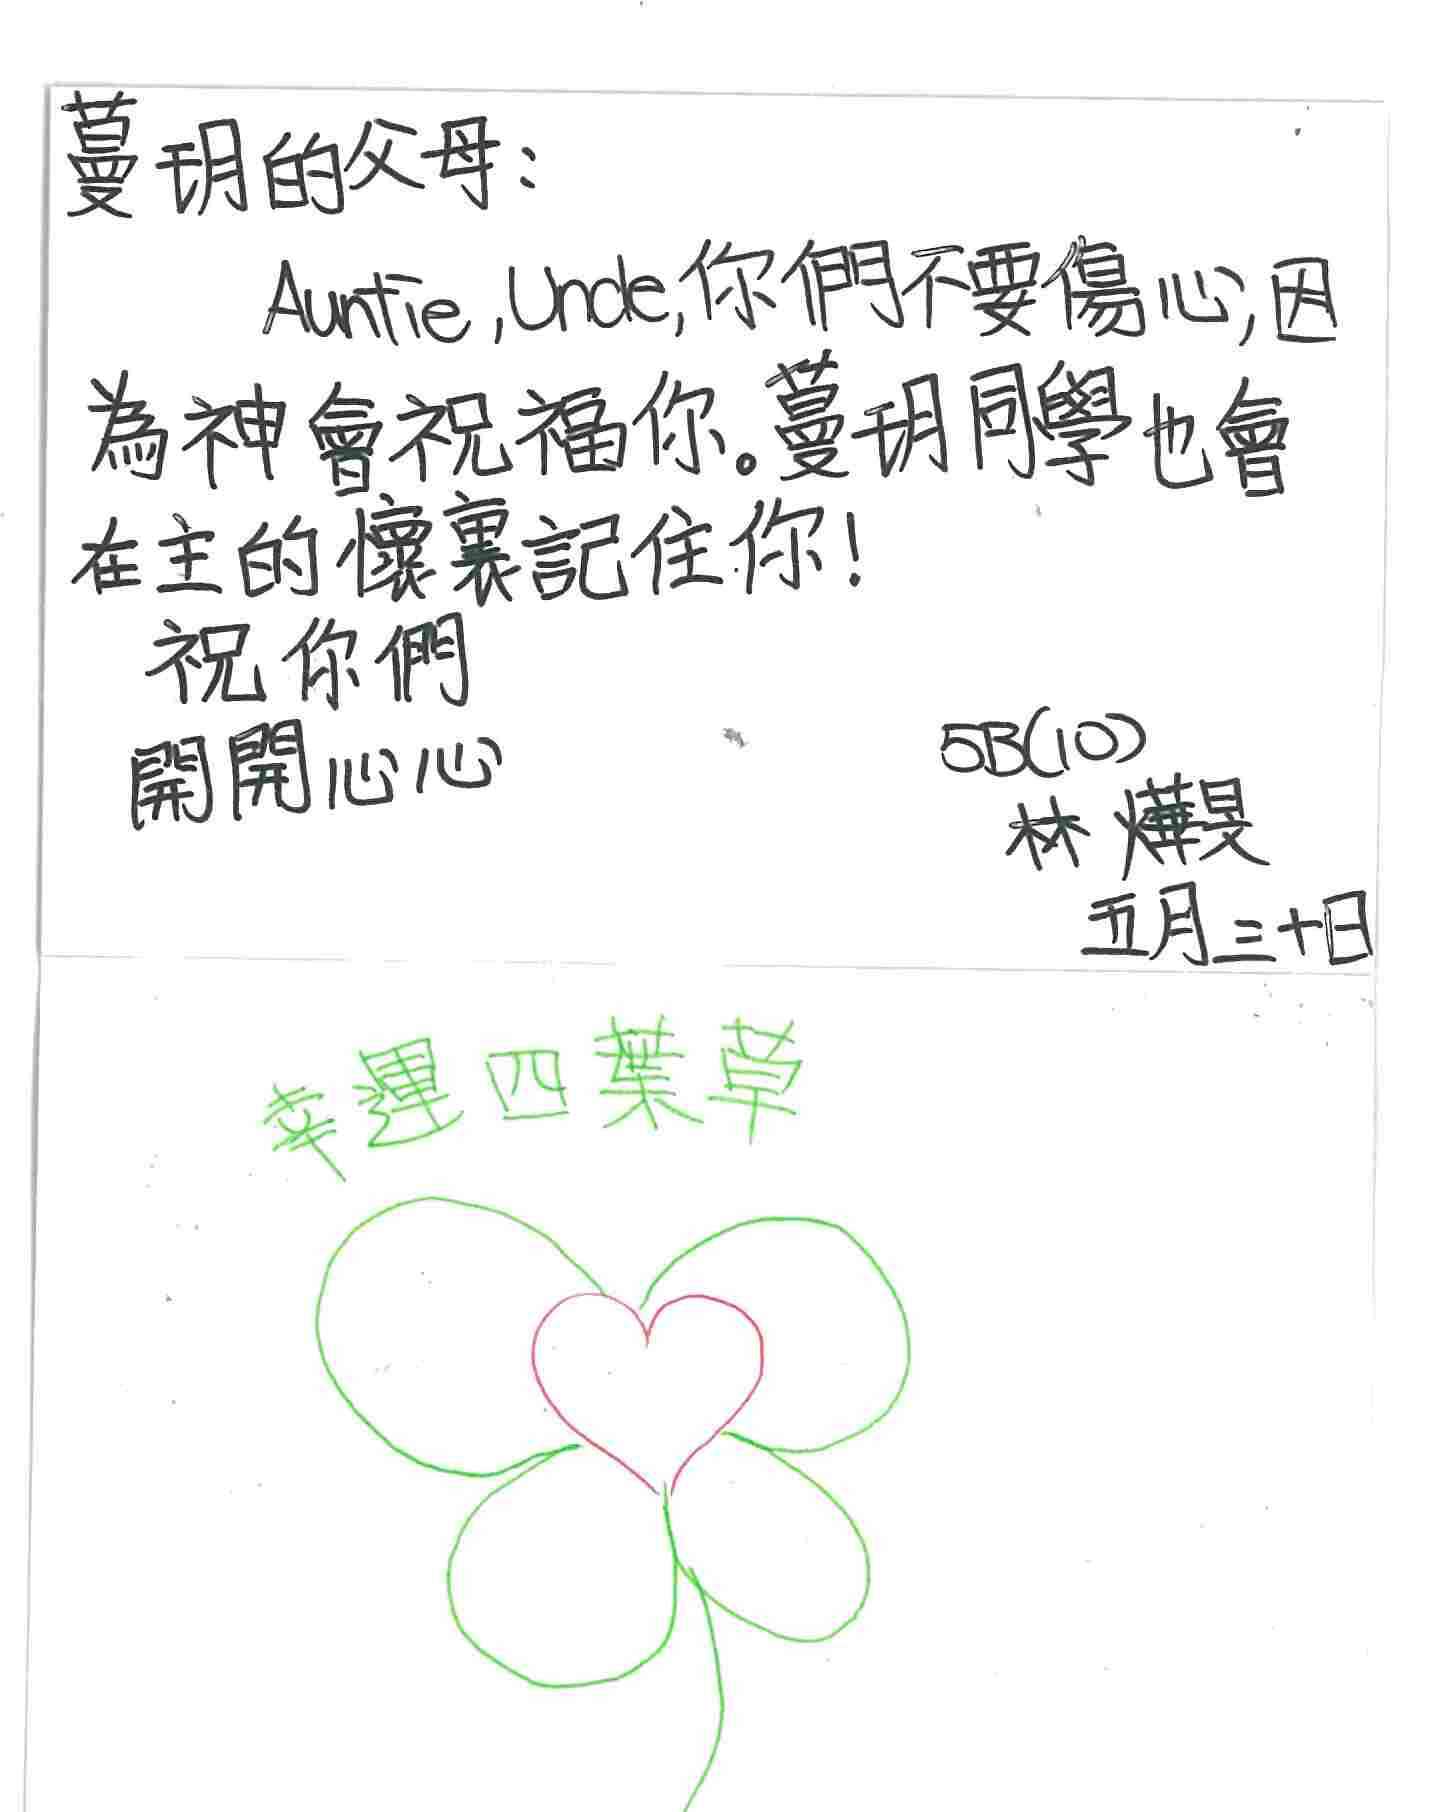 蔓玥的父母:
Auntie, Uncle, 你們不要傷心, 因
為神會祝福你。蔓玥同學也會
在主的懷裏記住你!
祝你們
開開心心
5B(10)
林燁旻
五月三十日
幸運四葉草